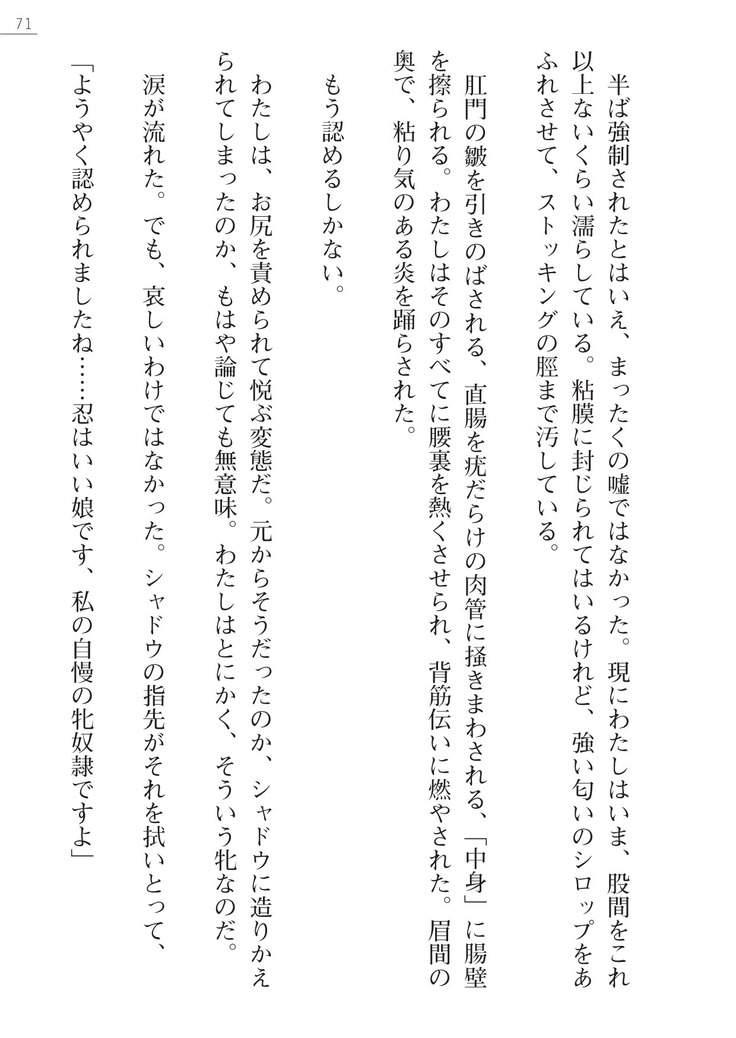 71
半ば強制されたとはいえ、まったくの嘘ではなかった。現にわたしはいま、股間をこれ
以上ないくらい濡らしている。粘膜に封じられてはいるけれど、強い匂いのシロップをあ
ふれさせて、ストッキングの脛まで汚している。
肛門の皺を引きのばされる、直腸を疣だらけの肉管に掻きまわされる、「中身」に腸壁
を擦られる。わたしはそのすべてに腰裏を熱くさせられ、背筋伝いに燃やされた。眉間の
奥で、粘り気のある炎を踊らされた。
もう認めるしかない。
わたしは、お尻を責められて悦ぶ変態だ。元からそうだったのか、シャドウに造りかえ
られてしまったのか、もはや論じても無意味。わたしはとにかく、そういう牝なのだ。
涙が流れた。でも、哀しいわけではなかった。シャドウの指先がそれを拭いとって、
「ようやく認められましたね……忍はいい娘です、私の自慢の牝奴隷ですよ」